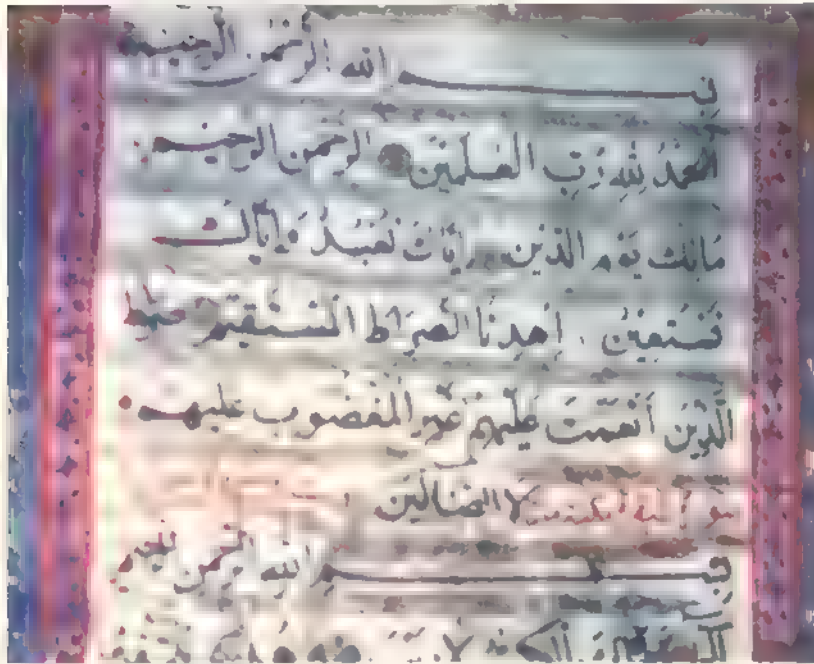 بسم الله الرحمن الرحيم
الحمد لله رب العلمين الرحمن الرحيم
مالك يوم الدين اياك نعبد واياك
نستعين اهدنا الصراط المستقيم صراط
الذين انعمت عليهم غير المغضوب عليهم
لا الضالين
بسم الله الرحمن